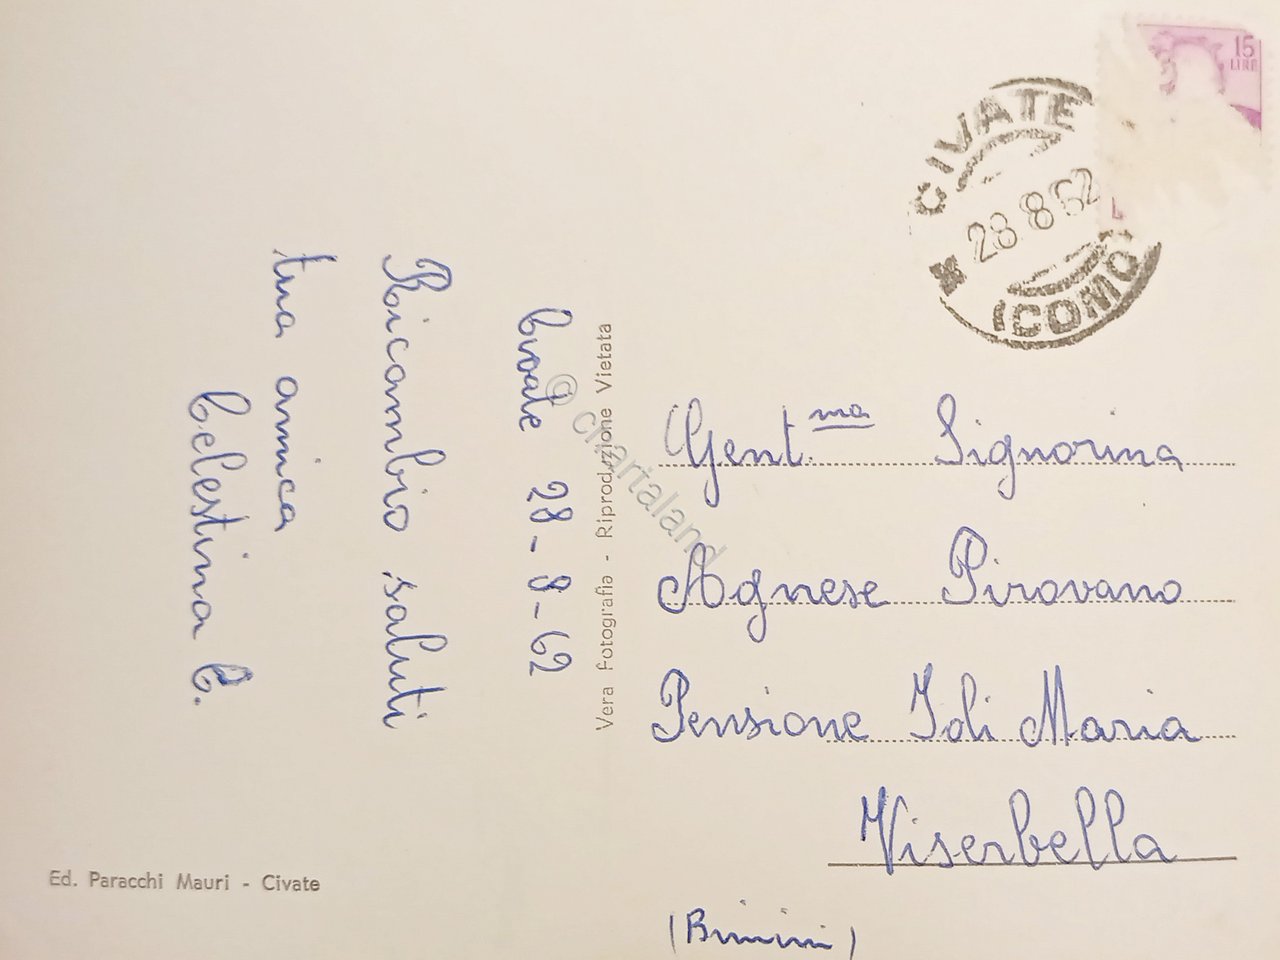 15
LIRE
CIVATE
28 8 62
(COMO)
Civate 28-8-62
Ricambio saluti
tua amica
Celestina C.
Vera Fotografia - Riproduzione Vietata
Gent.ma Signorina
Agnese Pirovano
Pensione Joli Maria
Viserbella
(Rimini)
Ed. Paracchi Mauri - Civate
© chartaland